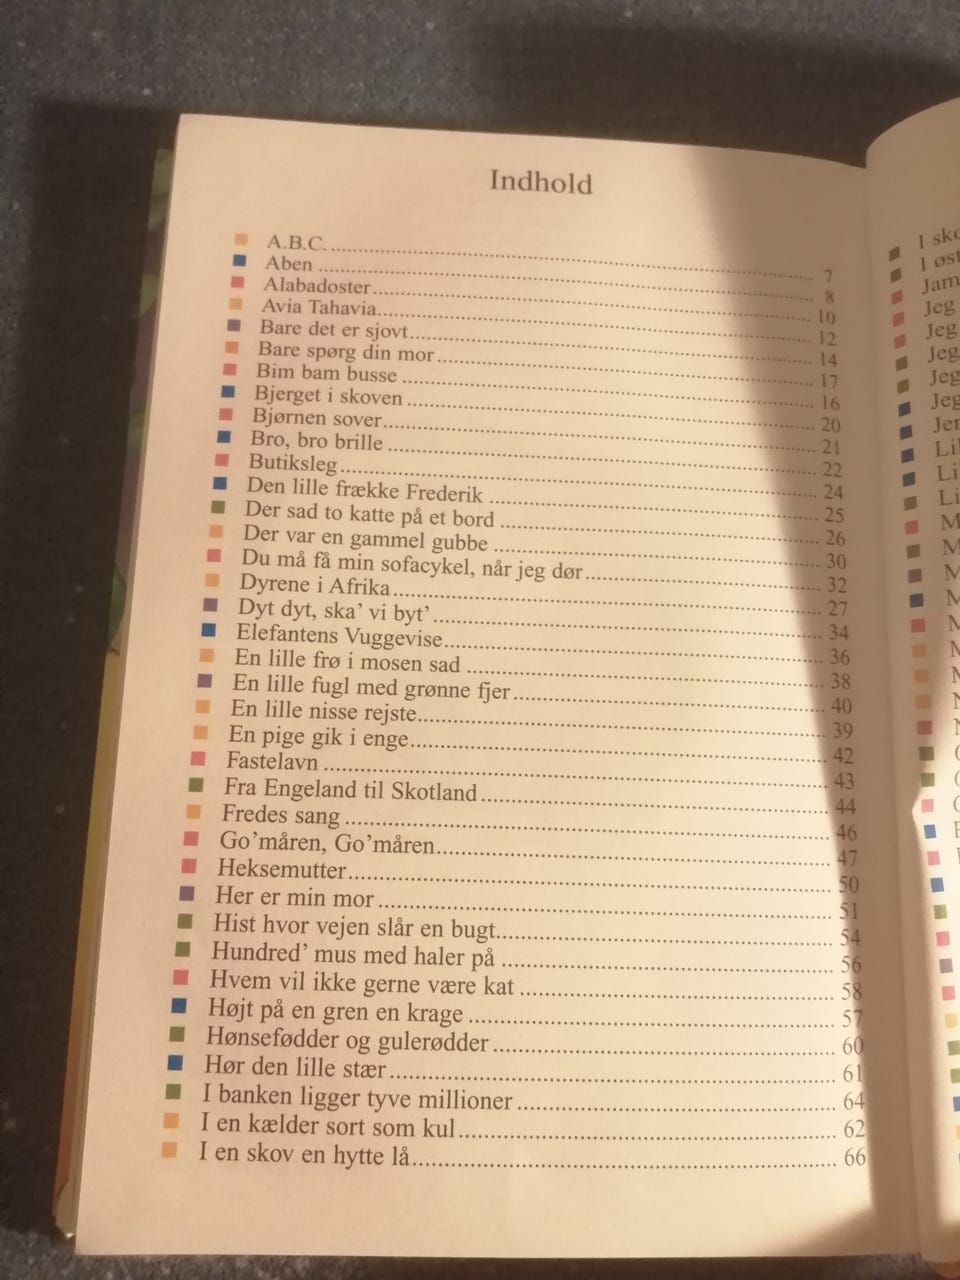 Indhold
A.B.C. 7
Aben 8
Alabadoster 10
Avia Tahavia 12
Bare det er sjovt 14
Bare spørg din mor 17
Bim bam busse 16
Bjerget i skoven 20
Bjørnen sover 21
Bro, bro brille 22
Butiksleg 24
Den lille frække Frederik 25
Der sad to katte på et bord 26
Der var en gammel gubbe 30
Du må få min sofacykel, når jeg dør 32
Dyrene i Afrika 27
Dyt dyt, ska’ vi byt’ 34
Elefantens Vuggevise 36
En lille frø i mosen sad 38
En lille fugl med grønne fjer 40
En lille nisse rejste 39
En pige gik i enge 42
Fastelavn 43
Fra Engeland til Skotland 44
Fredes sang 46
Go’måren, Go’måren 47
Heksemutter 50
Her er min mor 51
Hist hvor vejen slår en bugt 54
Hundred’ mus med haler på 56
Hvem vil ikke gerne være kat 58
Højt på en gren en krage 57
Hønsefødder og gulerødder 60
Hør den lille stær 61
I banken ligger tyve millioner 64
I en kælder sort som kul 62
I en skov en hytte lå 66
I
I
Jeg
Jeg
Jeg
Jeg
Jeg